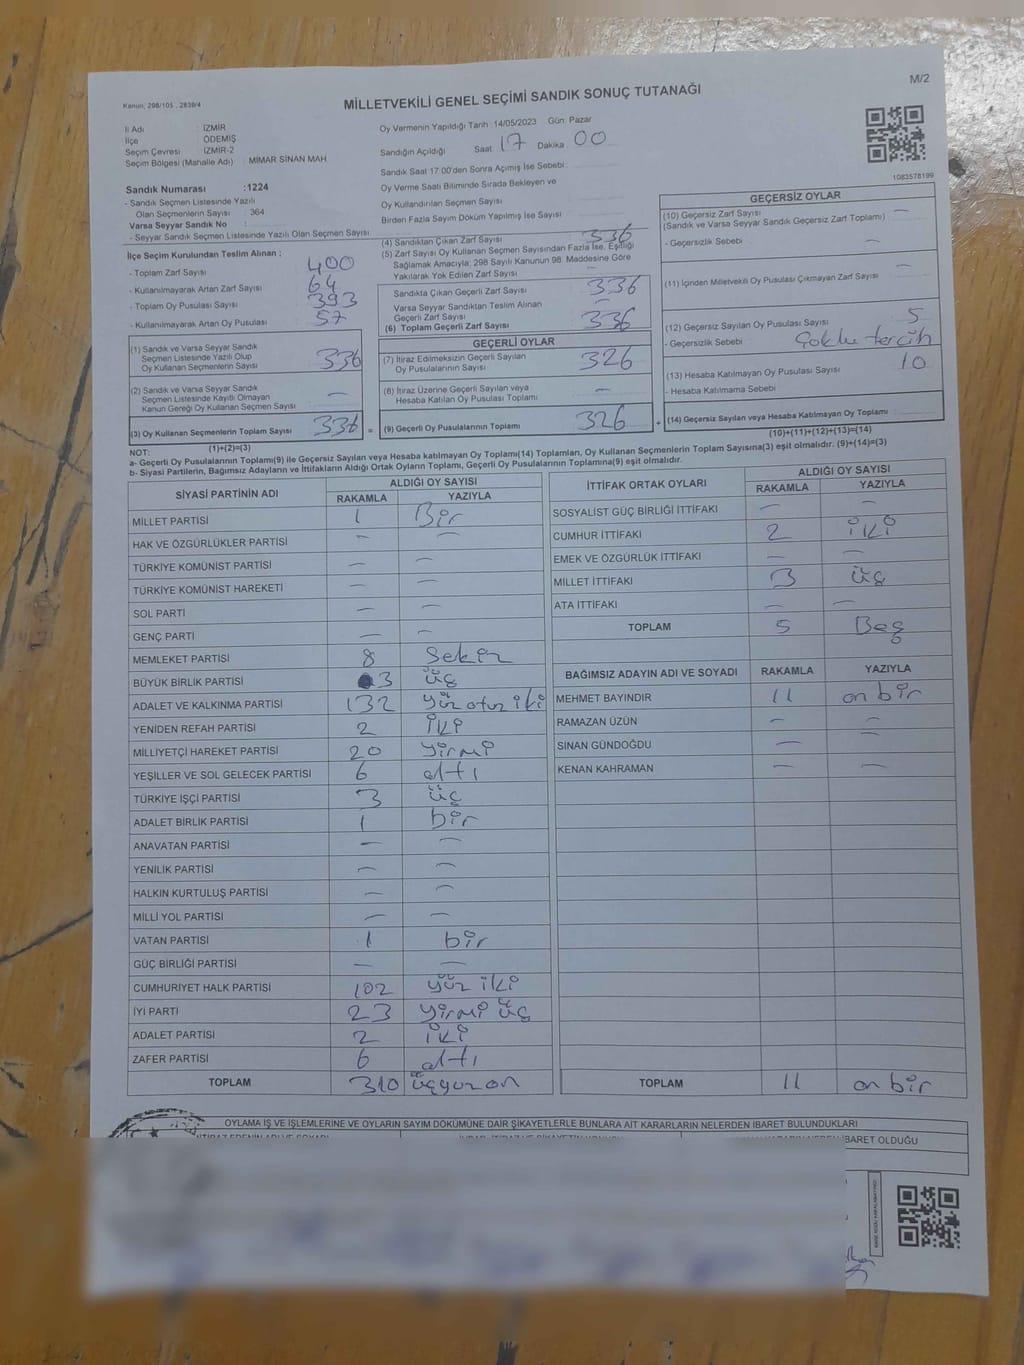 M/2
Kanun, 298/105 , 2839/4
MİLLETVEKİLİ GENEL SEÇİMİ SANDIK SONUÇ TUTANAĞI
İl Adı : İZMİR
İlçe : ÖDEMİŞ
Seçim Çevresi : İZMİR-2
Seçim Bölgesi (Mahalle Adı) : MİMAR SİNAN MAH
Sandık Numarası :1224
- Sandık Seçmen Listesinde Yazılı
Olan Seçmenlerin Sayısı : 364
Varsa Seyyar Sandık No :
- Seyyar Sandık Seçmen Listesinde Yazılı Olan Seçmen Sayısı
Oy Vermenin Yapıldığı Tarih :14/05/2023 Gün: Pazar
Sandığın Açıldığı Saat 17 Dakika 00
Sandık Saat 17.00'den Sonra Açımış İse Sebebi :
Oy Verme Saati Bitiminde Sırada Bekleyen ve
Oy Kullandırılan Seçmen Sayısı
Birden Fazla Sayım Döküm Yapılmış İse Sayısı
1083578199
İlçe Seçim Kurulundan Teslim Alınan ;
- Toplam Zarf Sayısı 400
- Kullanılmayarak Artan Zarf Sayısı 64
- Toplam Oy Pusulası Sayısı 393
- Kullanılmayarak Artan Oy Pusulası 57
(1) Sandık ve Varsa Seyyar Sandık
Seçmen Listesinde Yazılı Olup
Oy Kullanan Seçmenlerin Sayısı 336
(2) Sandık ve Varsa Seyyar Sandık
Seçmen Listesinde Kayıtlı Olmayan
Kanun Gereği Oy Kullanan Seçmen Sayısı —
(3) Oy Kullanan Seçmenlerin Toplam Sayısı 336 =
(1)+(2)=(3)
(4) Sandıktan Çıkan Zarf Sayısı 336
(5) Zarf Sayısı Oy Kullanan Seçmen Sayısından Fazla İse, Eşitliği
Sağlamak Amacıyla; 298 Sayılı Kanunun 98. Maddesine Göre
Yakılarak Yok Edilen Zarf Sayısı —
Sandıkta Çıkan Geçerli Zarf Sayısı 336
Varsa Seyyar Sandıktan Teslim Alınan
Geçerli Zarf Sayısı —
(6) Toplam Geçerli Zarf Sayısı 336
GEÇERLİ OYLAR
(7) İtiraz Edilmeksizin Geçerli Sayılan
Oy Pusulalarının Sayısı 326
(8) İtiraz Üzerine Geçerli Sayılan veya
Hesaba Katılan Oy Pusulası Toplamı —
(9) Geçerli Oy Pusulalarının Toplamı 326 +
GEÇERSİZ OYLAR
(10) Geçersiz Zarf Sayısı —
(Sandık ve Varsa Seyyar Sandık Geçersiz Zarf Toplamı)
- Geçersizlik Sebebi —
(11) İçinden Milletvekili Oy Pusulası Çıkmayan Zarf Sayısı —
(12) Geçersiz Sayılan Oy Pusulası Sayısı 5
- Geçersizlik Sebebi Çoklu tercih
(13) Hesaba Katılmayan Oy Pusulası Sayısı 10
- Hesaba Katılmama Sebebi
(14) Geçersiz Sayılan veya Hesaba Katılmayan Oy Toplamı
(10)+(11)+(12)+(13)=(14)
NOT:
a- Geçerli Oy Pusulalarının Toplamı(9) ile Geçersiz Sayılan veya Hesaba katılmayan Oy Toplamı(14) Toplamları, Oy Kullanan Seçmenlerin Toplam Sayısına(3) eşit olmalıdır. (9)+(14)=(3)
b- Siyasi Partilerin, Bağımsız Adayların ve İttifakların Aldığı Ortak Oyların Toplamı, Geçerli Oy Pusulalarının Toplamına(9) eşit olmalıdır.
SİYASİ PARTİNİN ADI ALDIĞI OY SAYISI
RAKAMLA YAZIYLA
MİLLET PARTİSİ 1 Bir
HAK VE ÖZGÜRLÜKLER PARTİSİ — —
TÜRKİYE KOMÜNİST PARTİSİ — —
TÜRKİYE KOMÜNİST HAREKETİ — —
SOL PARTİ — —
GENÇ PARTİ — —
MEMLEKET PARTİSİ 8 Sekiz
BÜYÜK BİRLİK PARTİSİ 3 üç
ADALET VE KALKINMA PARTİSİ 132 yüz otuz iki
YENİDEN REFAH PARTİSİ 2 iki
MİLLİYETÇİ HAREKET PARTİSİ 20 yirmi
YEŞİLLER VE SOL GELECEK PARTİSİ 6 altı
TÜRKİYE İŞÇİ PARTİSİ 3 üç
ADALET BİRLİK PARTİSİ 1 bir
ANAVATAN PARTİSİ — —
YENİLİK PARTİSİ — —
HALKIN KURTULUŞ PARTİSİ — —
MİLLİ YOL PARTİSİ — —
VATAN PARTİSİ 1 bir
GÜÇ BİRLİĞİ PARTİSİ — —
CUMHURİYET HALK PARTİSİ 102 yüz iki
İYİ PARTİ 23 yirmi üç
ADALET PARTİSİ 2 iki
ZAFER PARTİSİ 6 altı
TOPLAM 310 üçyüz on
İTTİFAK ORTAK OYLARI ALDIĞI OY SAYISI
RAKAMLA YAZIYLA
SOSYALİST GÜÇ BİRLİĞİ İTTİFAKI — —
CUMHUR İTTİFAKI 2 iki
EMEK VE ÖZGÜRLÜK İTTİFAKI — —
MİLLET İTTİFAKI 3 üç
ATA İTTİFAKI — —
TOPLAM 5 Beş
BAĞIMSIZ ADAYIN ADI VE SOYADI RAKAMLA YAZIYLA
MEHMET BAYINDIR 11 on bir
RAMAZAN ÜZÜN — —
SİNAN GÜNDOĞDU — —
KENAN KAHRAMAN — —
TOPLAM 11 on bir
OYLAMA İŞ VE İŞLEMLERİNE VE OYLARIN SAYIM DÖKÜMÜNE DAİR ŞİKAYETLERLE BUNLARA AİT KARARLARIN NELERDEN İBARET BULUNDUKLARI
İBARET OLDUĞU